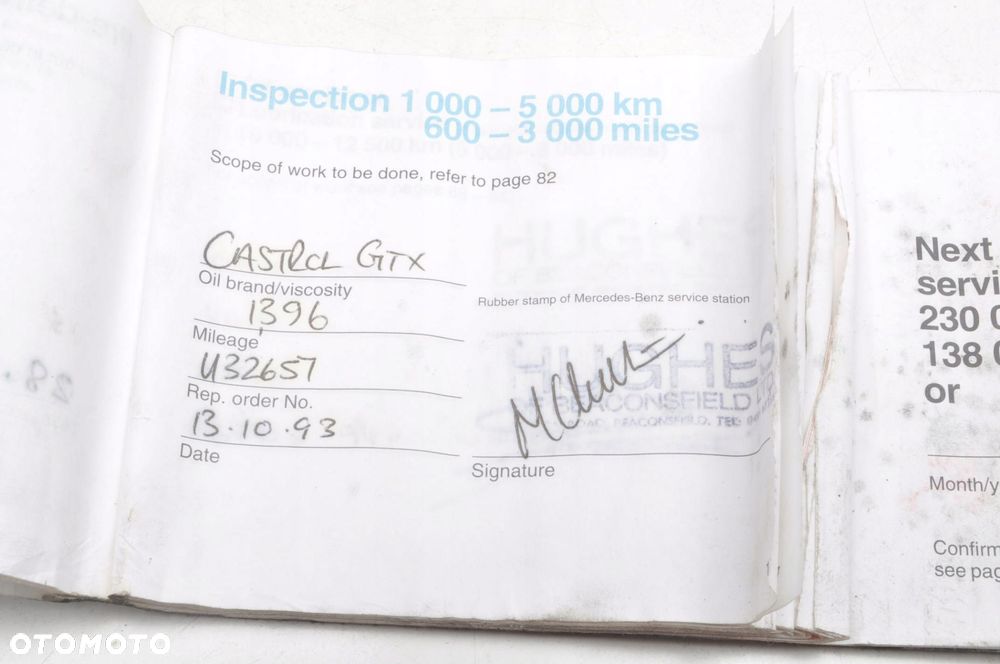 Inspection 1 000 – 5 000 km
600 – 3 000 miles
Scope of work to be done, refer to page 82
CASTROL GTX
Oil brand/viscosity
1396
Mileage
U32657
Rep. order No.
13.10.93
Date
Rubber stamp of Mercedes-Benz service station
HUGHES
BEACONSFIELD LTD
BEACONSFIELD. TEL:
Signature
Next
servi
230 0
138 0
or
Month/y
Confirm
see pag
28.
OTOMOTO